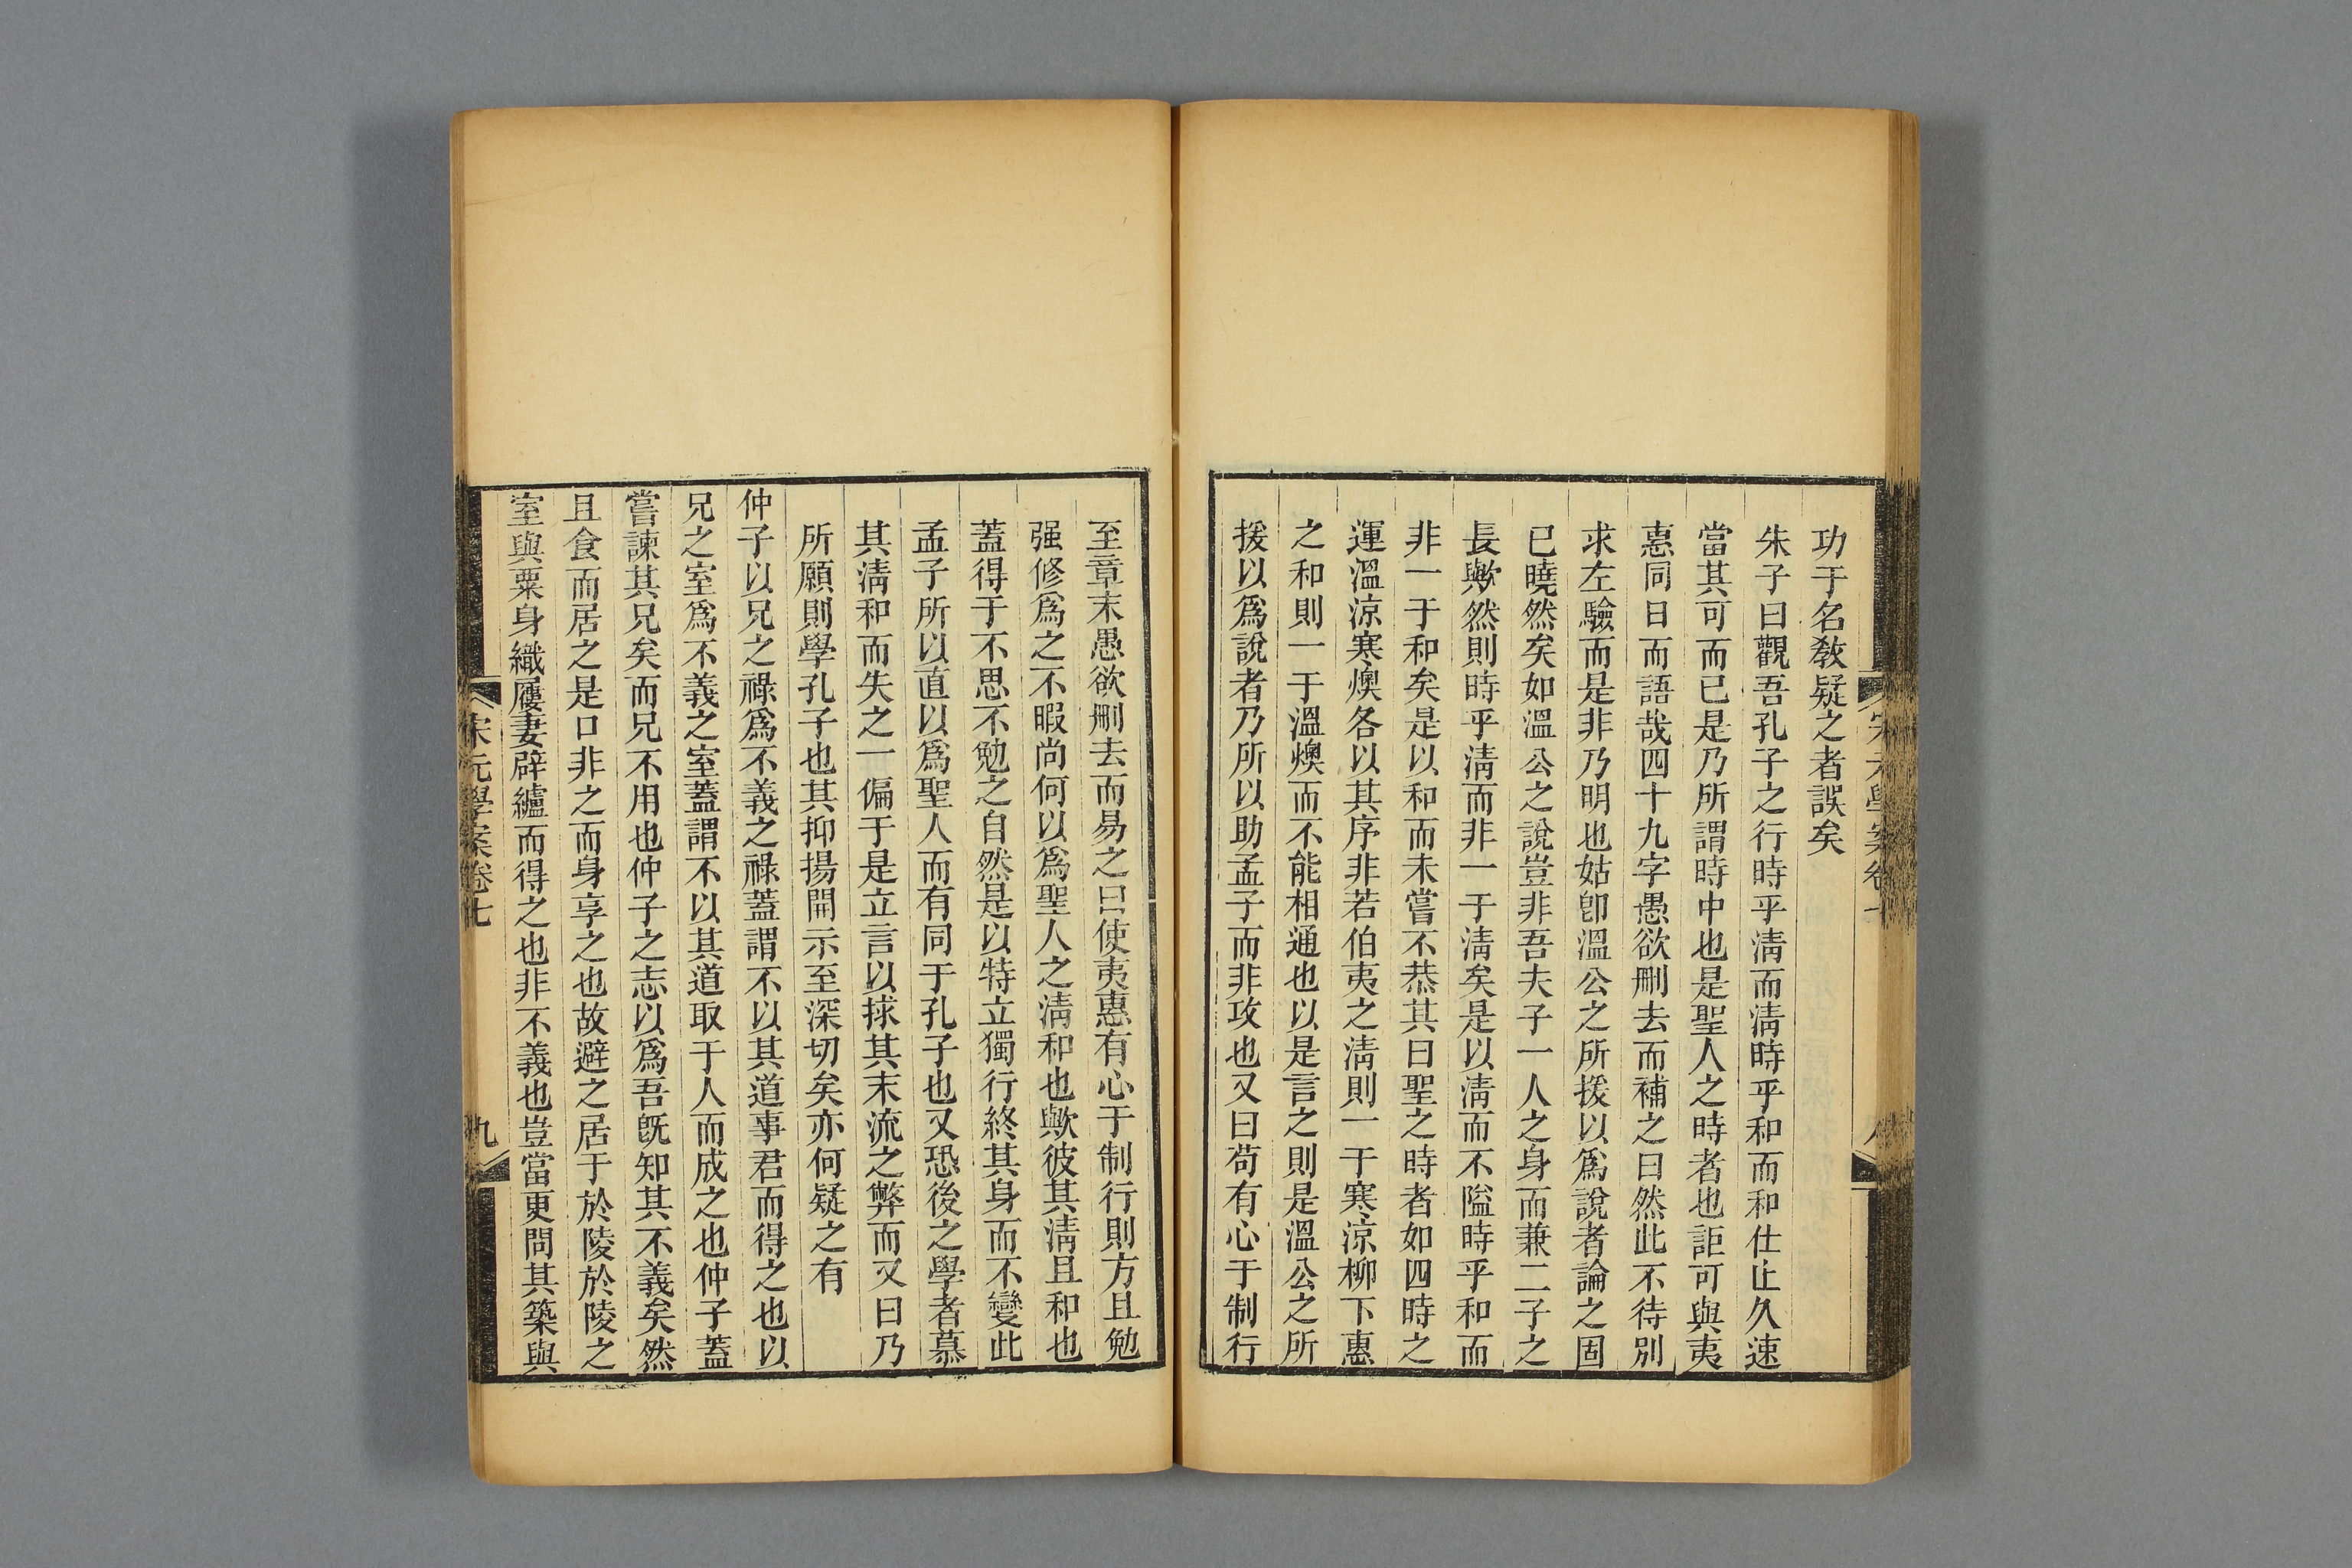 功于名敎疑之者誤矣
朱子曰觀吾孔子之行時乎淸而淸時乎和而和仕止久速
當其可而已是乃所謂時中也是聖人之時者也詎可與夷
惠同日而語哉四十九字愚欲刪去而補之曰然此不待別
求左驗而是非乃明也姑卽溫公之所援以爲說者論之固
已曉然矣如溫公之說豈非吾夫子一人之身而兼二子之
長歟然則時乎淸而非一于淸矣是以淸而不隘時乎和而
非一于和矣是以和而未嘗不恭其曰聖之時者如四時之
運溫涼寒燠各以其序非若伯夷之淸則一于寒涼柳下惠
之和則一于溫燠而不能相通也以是言之則是溫公之所
援以爲說者乃所以助孟子而非攻也又曰苟有心于制行
至章末愚欲刪去而易之曰使夷惠有心于制行則方且勉
强修爲之不暇尚何以爲聖人之淸和也歟彼其淸且和也
蓋得于不思不勉之自然是以特立獨行終其身而不變此
孟子所以直以爲聖人而有同于孔子也又恐後之學者慕
其淸和而失之一偏于是立言以捄其末流之弊而又曰乃
所願則學孔子也其抑揚開示至深切矣亦何疑之有
仲子以兄之祿爲不義之祿蓋謂不以其道事君而得之也以
兄之室爲不義之室蓋謂不以其道取于人而成之也仲子蓋
嘗諫其兄矣而兄不用也仲子之志以爲吾旣知其不義矣然
且食而居之是口非之而身享之也故避之居于於陵於陵之
室與粟身織屨妻辟纑而得之也非不義也豈當更問其築與
宋元學案卷七
九